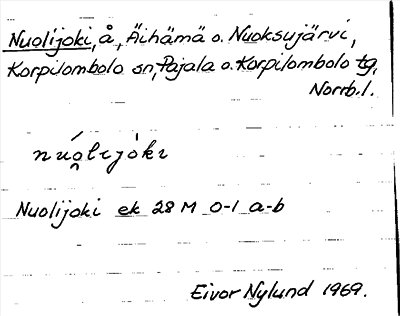 Nuolijoki, å, Äihämä o. Nuoksujärvi,
Korpilombolo sn, Pajala o. Korpilombolo tg,
Norrb. l.
nuo̯lijoki
Nuolijoki ek 28 M 0-1 a-b
Eivor Nylund 1969.